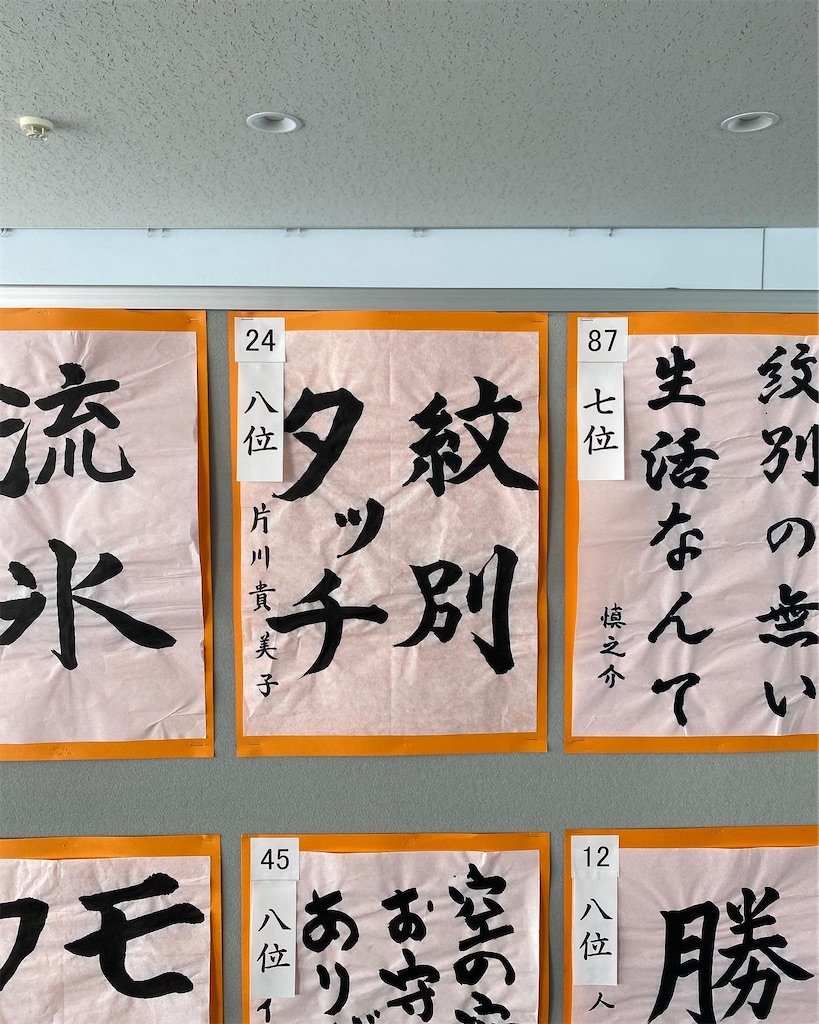 流
氷
24
八位
紋別
タッチ
片川貴美子
87
七位
紋別の無い
生活なんて
慎之介
モ
45
八位
空の
お守
あり
12
八位
勝
月
人